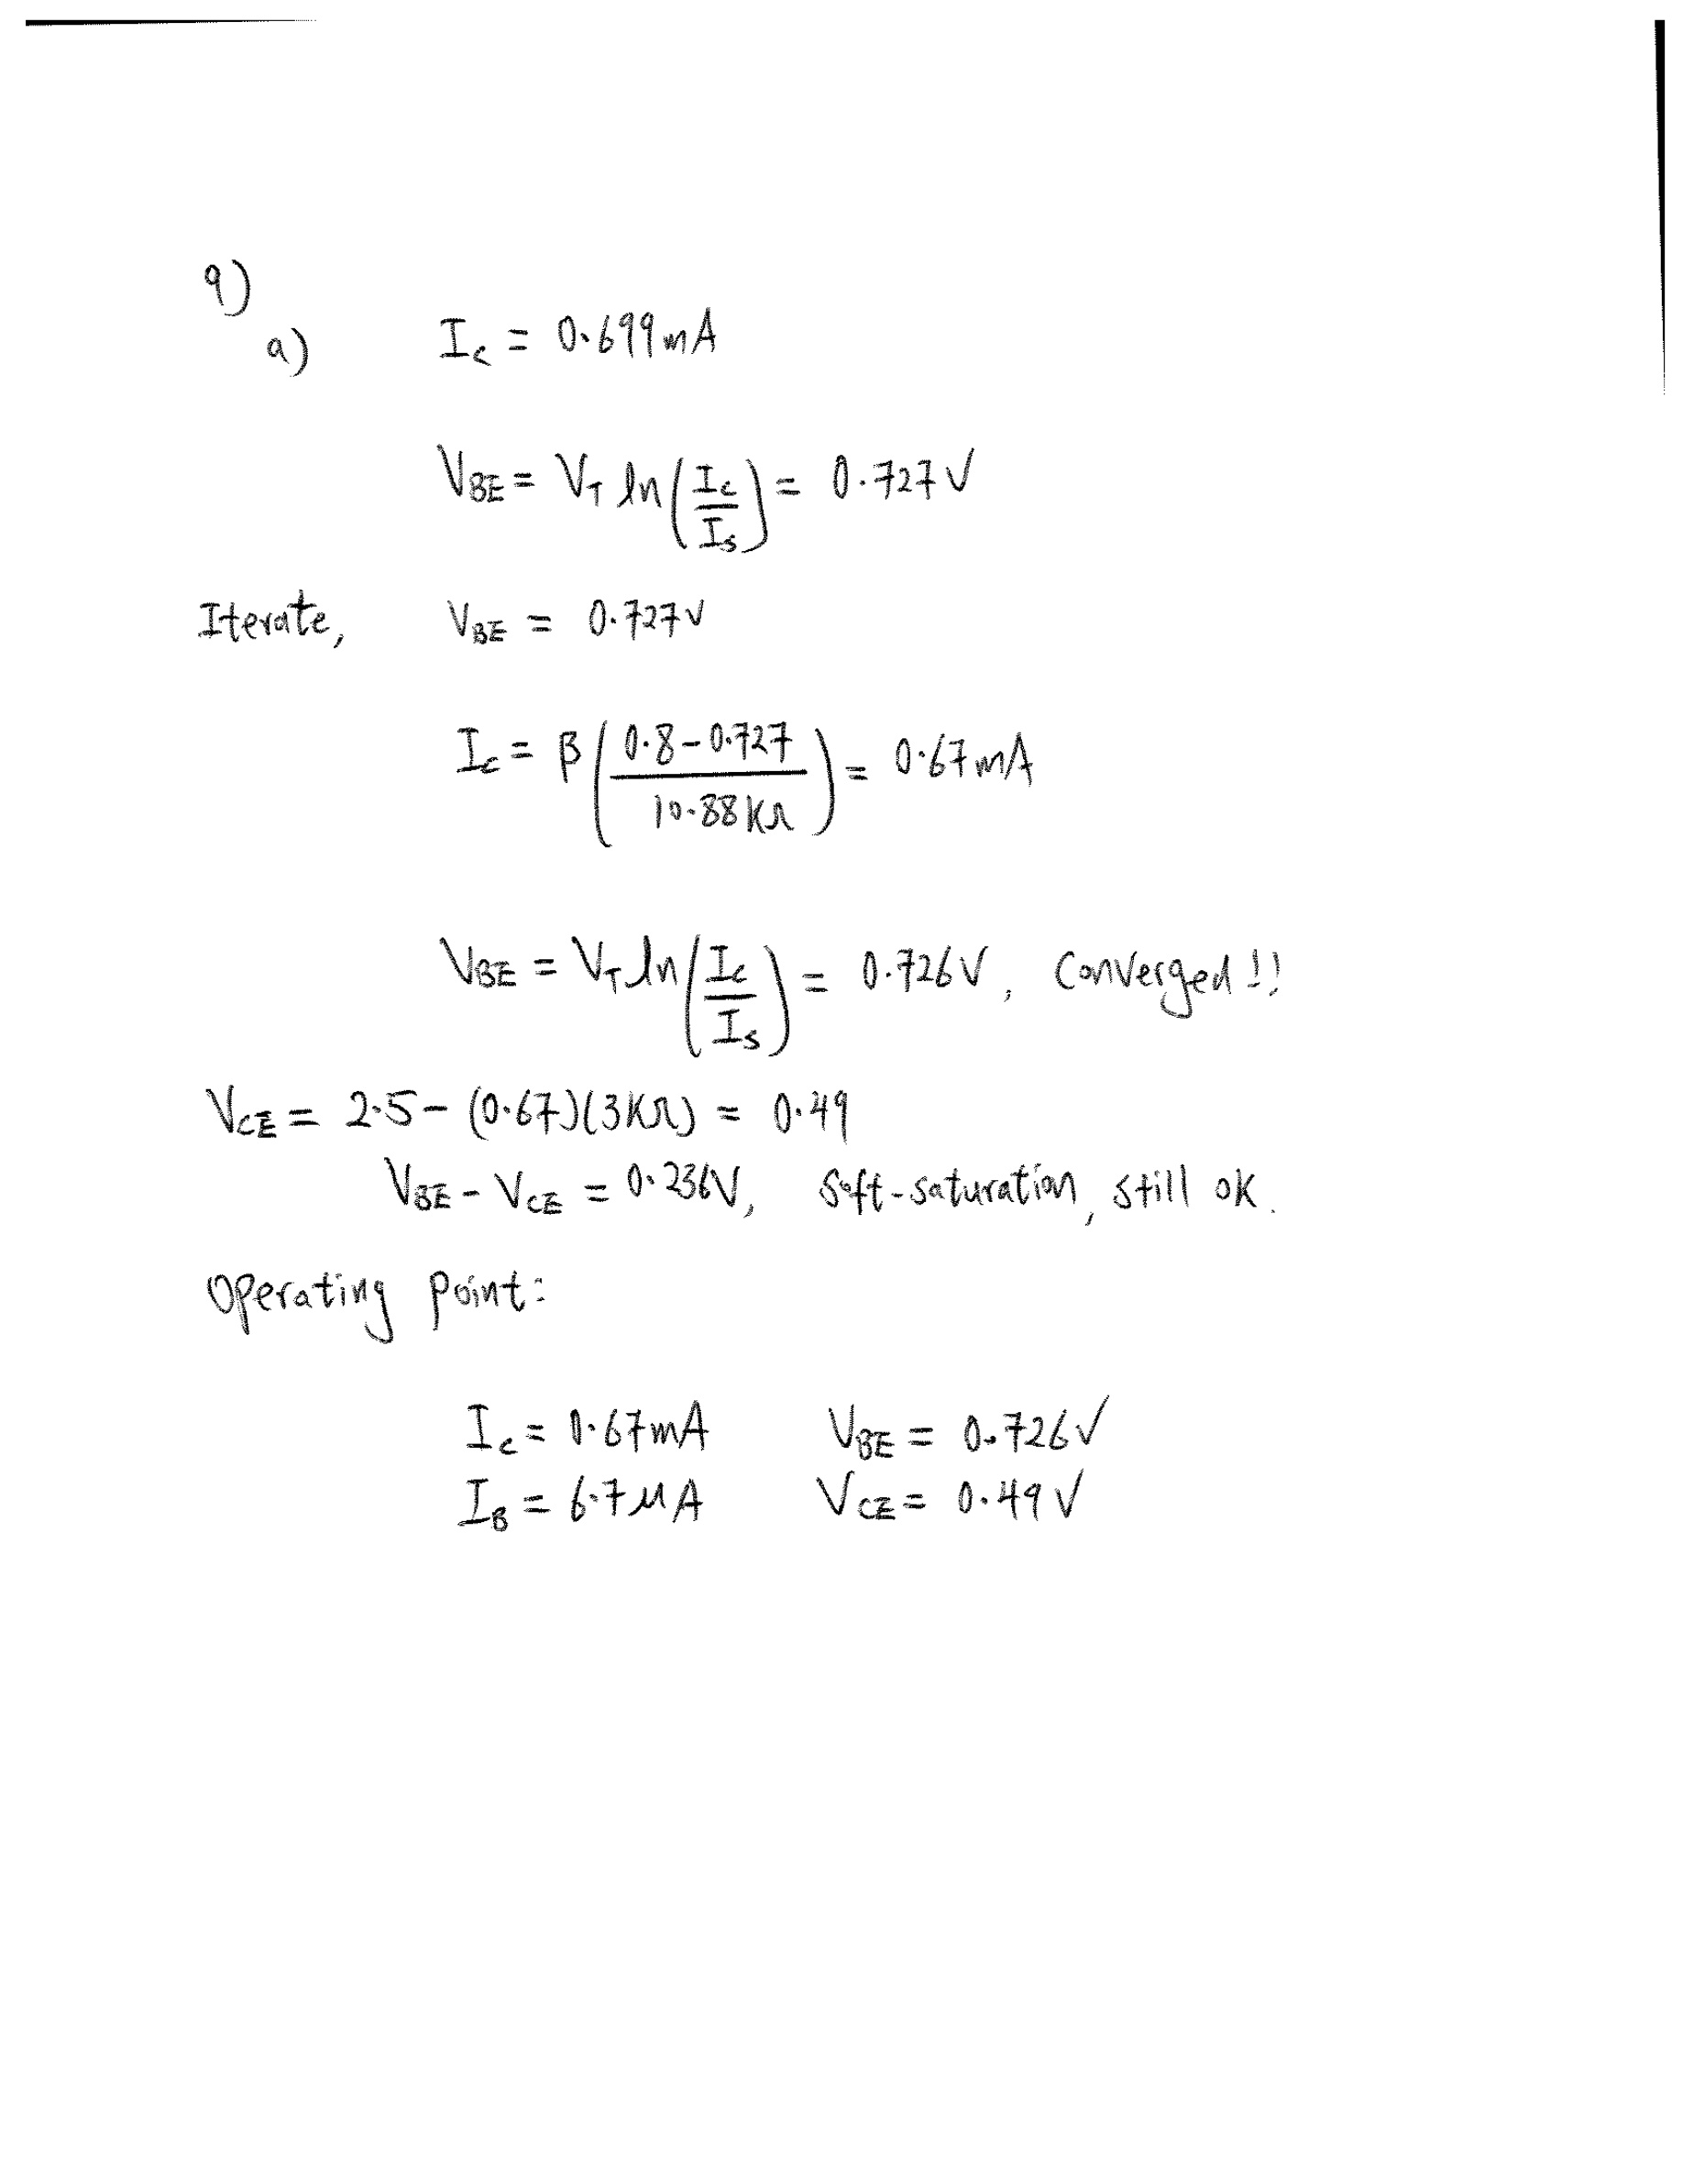 9)
a) I_C = 0.699 mA
V_BE = V_T ln(I_C/I_S) = 0.727 V
Iterate, V_BE = 0.727 V
I_C = β((0.8-0.727)/(10.88 KΩ)) = 0.67 mA
V_BE = V_T ln(I_C/I_S) = 0.726 V, Converged!!
V_CE = 2.5 - (0.67)(3KΩ) = 0.49
V_BE - V_CE = 0.236V, soft-saturation, still ok.
Operating Point:
I_C = 0.67 mA V_BE = 0.726 V
I_B = 6.7 μA V_CE = 0.49 V